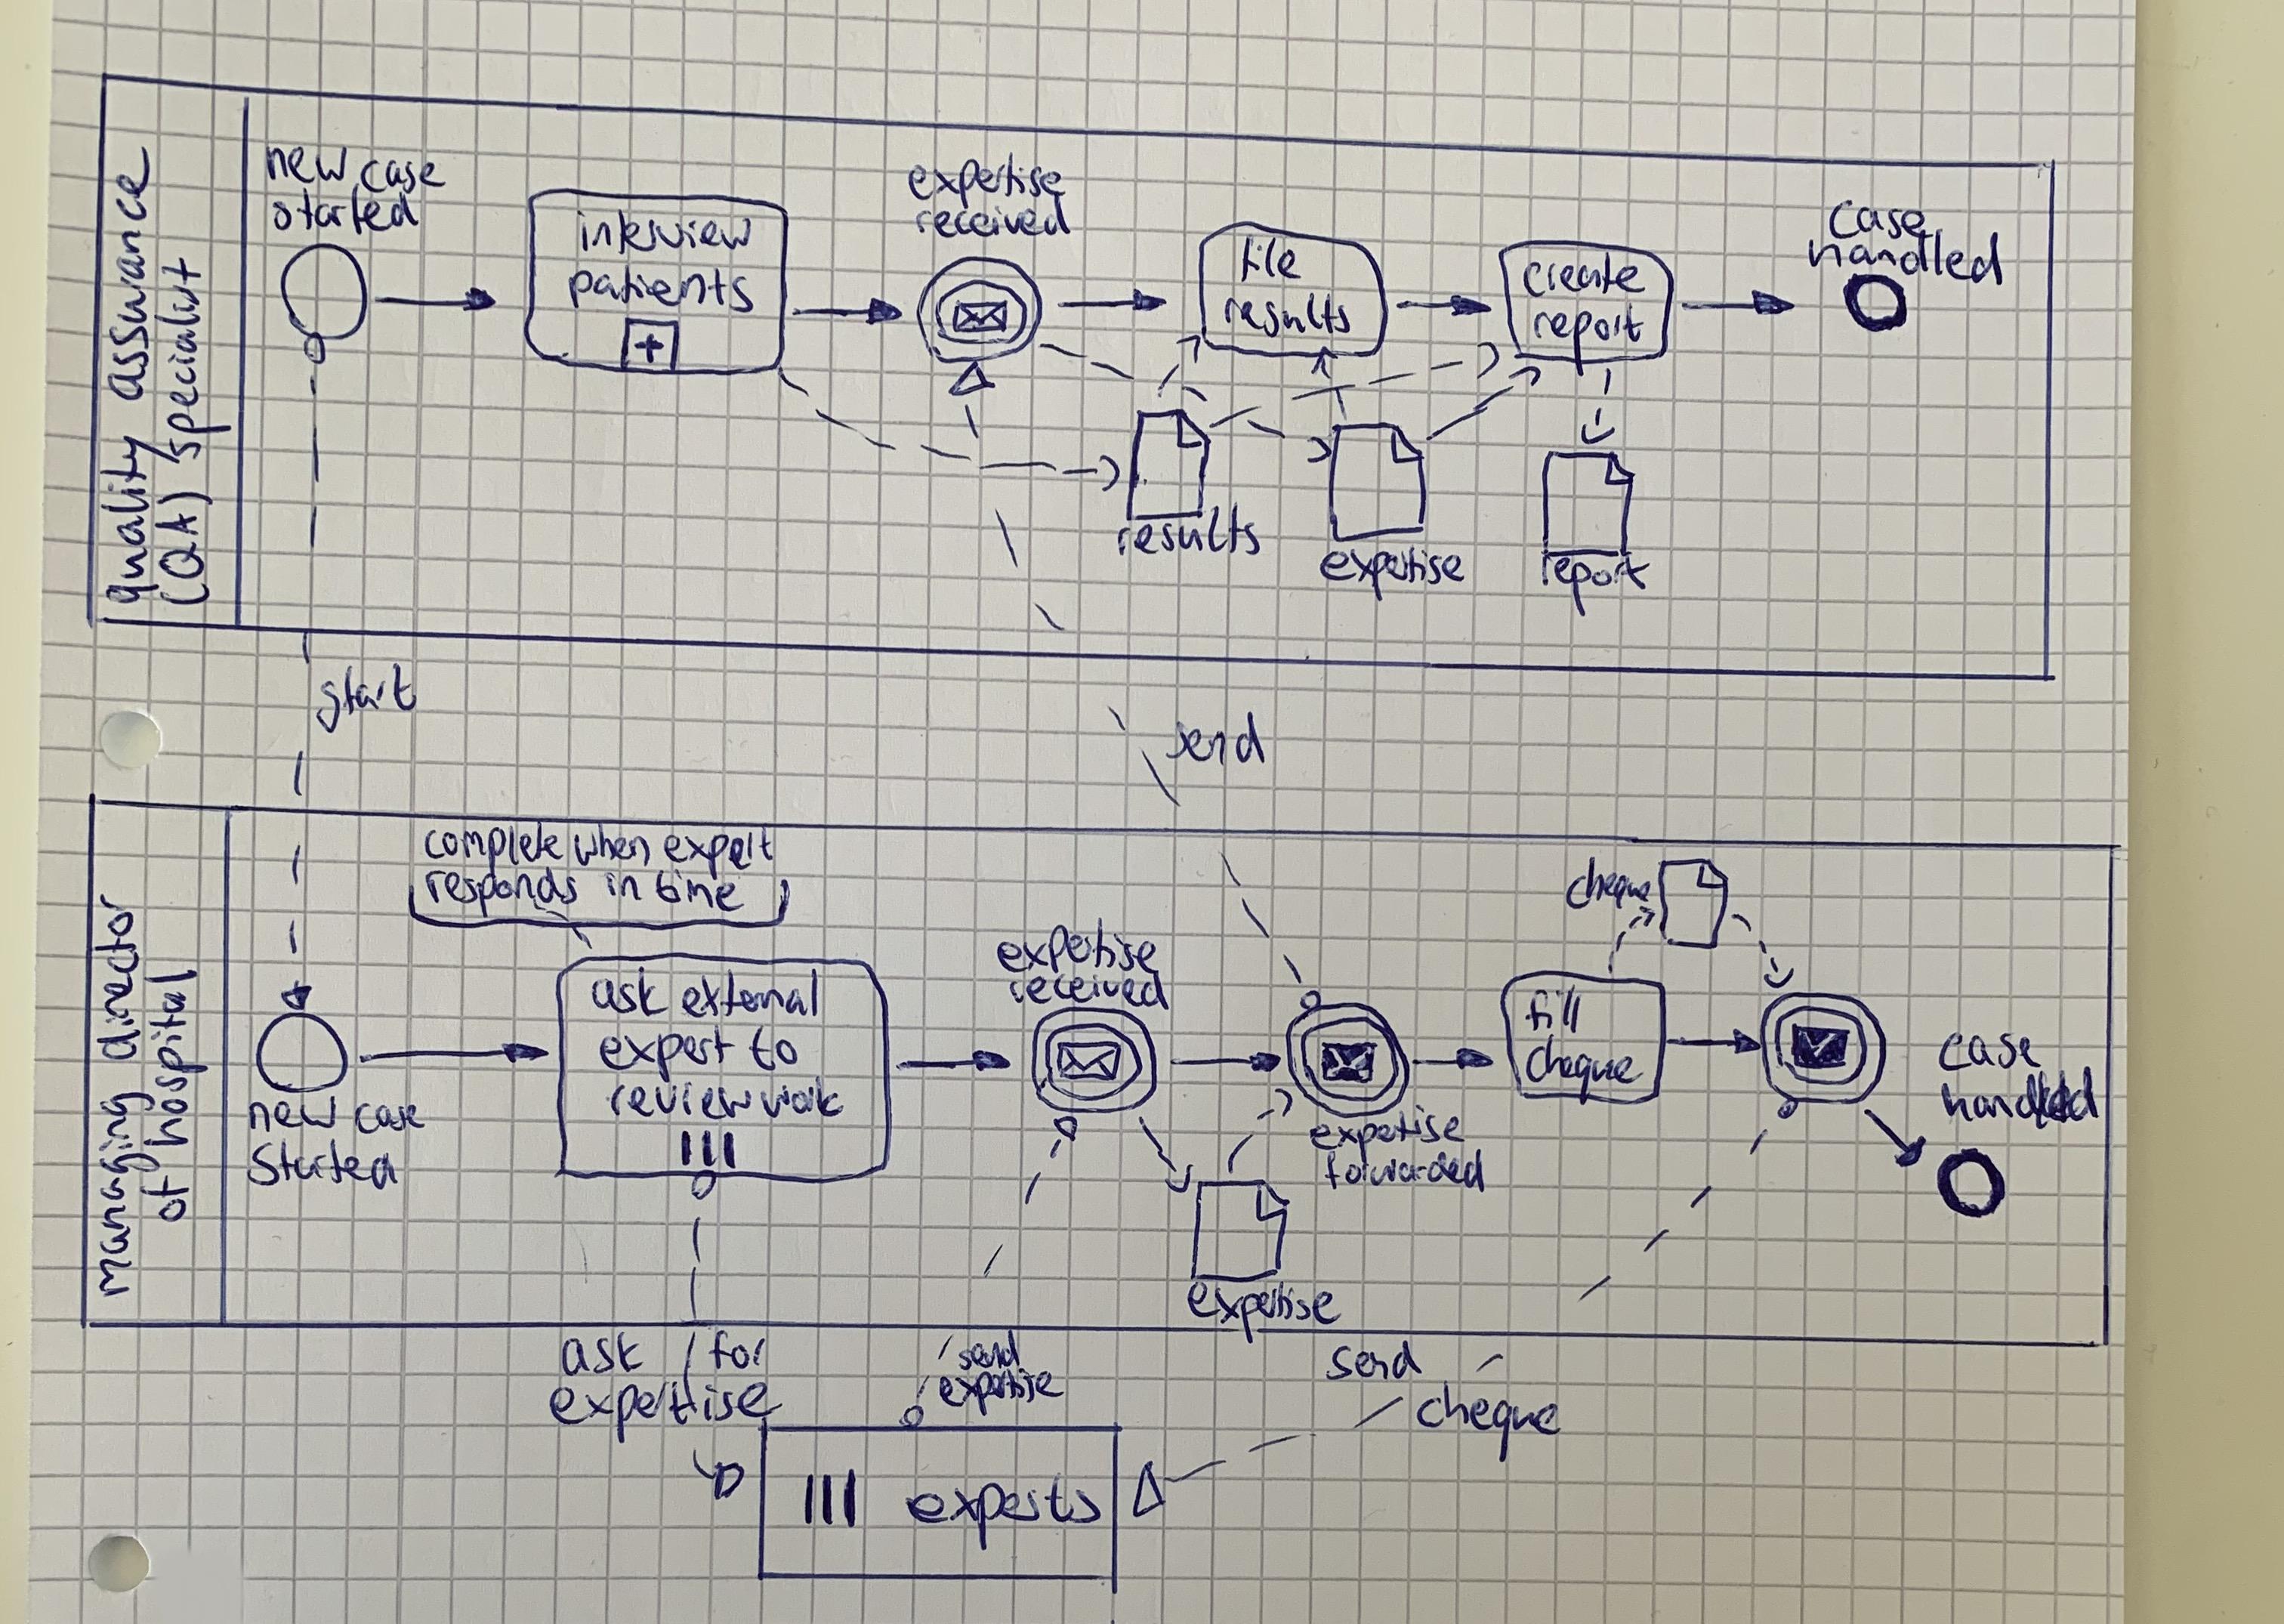 Quality assurance
(QA) specialist
new case
started
interview
patients
expertise
received
file
results
create
report
case
handled
results
expertise
report
start
send
managing director
of hospital
complete when expert
responds in time
new case
started
ask external
expert to
review work
expertise
received
expertise
forwarded
expertise
fill
cheque
cheque
case
handled
ask for
expertise
send
expertise
send
cheque
experts